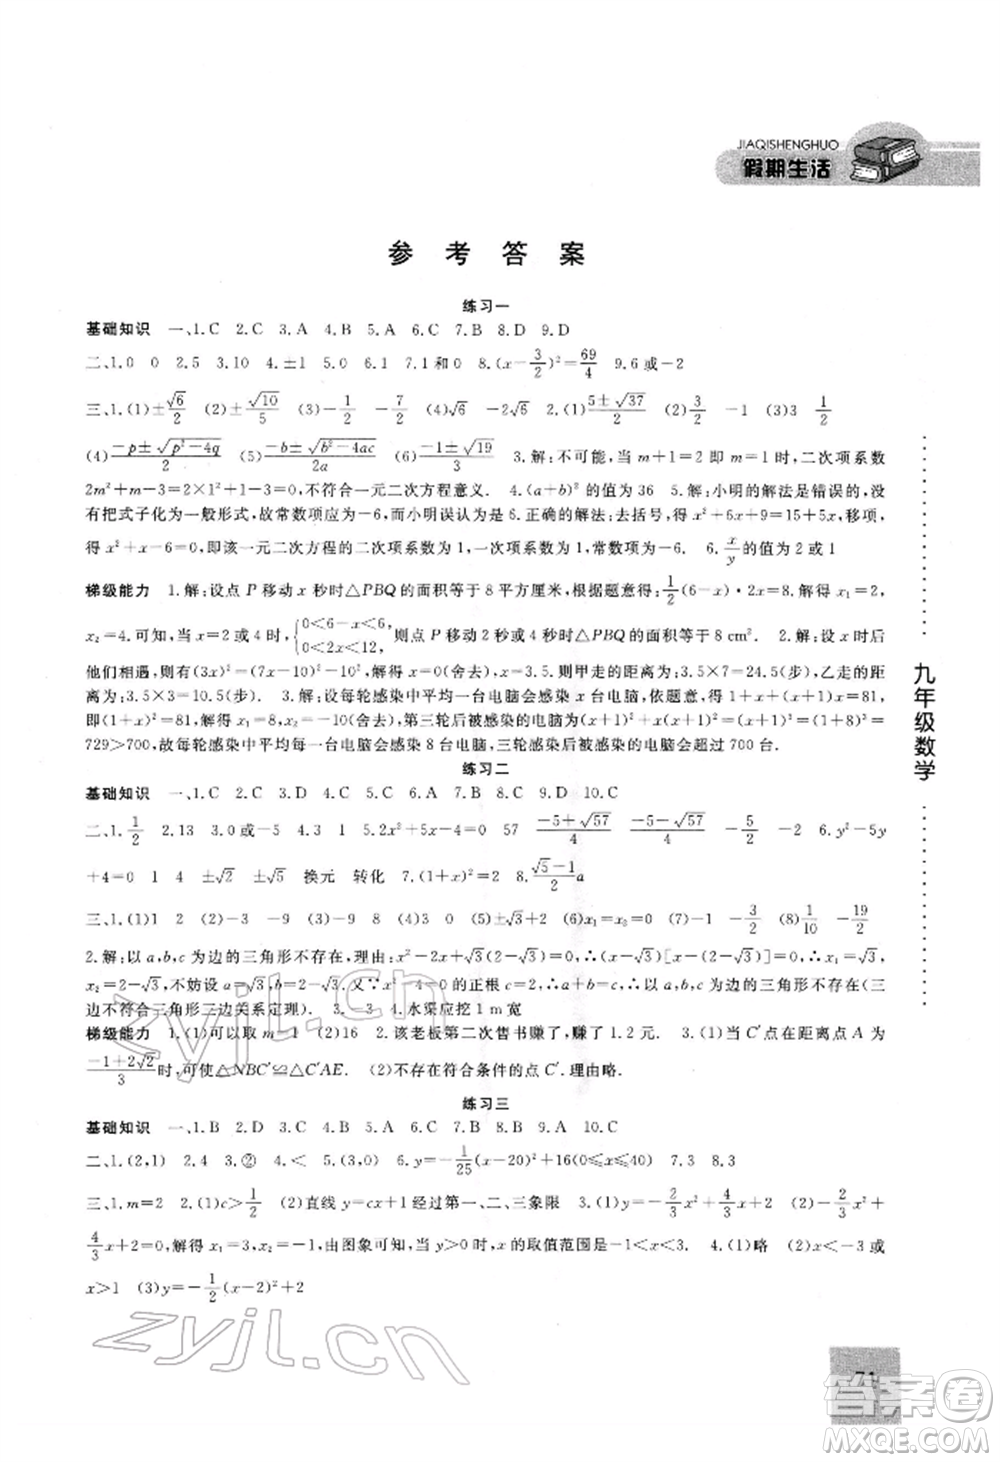 JIAQISHENGHUO
假期生活
参 考 答 案
练习一
基础知识 一、1.C 2.C 3.A 4.B 5.A 6.C 7.B 8.D 9.D
二、1.0 0 2.5 3.10 4.±1 5.0 6.1 7.1和0 8.(x-3/2)²=69/4 9.6或-2
三、1.(1)±√6/2 (2)±√10/5 (3)-1/2 -7/2 (4)√6 -2√6 2.(1)(5±√37)/2 (2)3/2 -1 (3)3 1/2
(4)(-p±√(p²-4q))/2 (5)(-b±√(b²-4ac))/2a (6)(-1±√19)/3 3.解:不可能,当m+1=2即m=1时,二次项系数
2m²+m-3=2×1²+1-3=0,不符合一元二次方程意义. 4.(a+b)²的值为36 5.解:小明的解法是错误的,没
有把式子化为一般形式,故常数项应为-6,而小明误认为6.正确的解法:去括号,得x²+6x+9=15+5x,移项,
得x²+x-6=0,即该一元二次方程的二次项系数为1,一次项系数为1,常数项为-6. 6.x/y的值为2或1
梯级能力 1.解:设点P移动x秒时△PBQ的面积等于8平方厘米,根据题意得:1/2(6-x)·2x=8,解得x₁=2,
x₂=4.可知,当x=2或4时,{0<6-x<6, 0<2x<12,则点P移动2秒或4秒时△PBQ的面积等于8 cm². 2.解:设x时后
他们相遇,则有(3x)²=(7x-10)²-10²,解得x=0(舍去),x=3.5.则甲走的距离为:3.5×7=24.5(步),乙走的距
离为;3.5×3=10.5(步). 3.解:设每轮感染中平均一台电脑会感染x台电脑,依题意,得1+x+(1+x)x=81,
即(1+x)²=81,解得x₁=8,x₂=-10(舍去),第三轮后被感染的电脑为(x+1)²+x(x+1)²=(x+1)³=(8+1)³=
729>700,故每轮感染中平均一台电脑会感染8台电脑,三轮感染后被感染的电脑会超过700台.
练习二
基础知识 一、1.C 2.C 3.D 4.C 5.D 6.A 7.B 8.B 9.D 10.C
二、1.1/2 2.13 3.0或-5 4.3 1 5.2x²+5x-4=0 57 (-5+√57)/4 (-5-√57)/4 -5/2 -2 6.y²-5y
+4=0 1 4 ±√2 ±2 换元 转化 7.(1+x)²=2 8.(√5-1)/2 a
三、1.(1)1 2 (2)-3 -9 (3)9 -1 (4)3 0 (5)±√3 (6)x₁=x₂=0 (7)-9/2 -3/2 (8)1/10 -19/2
2.解:以a,b,c为边的三角形不存在,理由:x²-2x+√3(2-√3)=0,∴(x-√3)[x-(2-√3)]=0,∴x₁=√3,
x₂=2-√3,不妨设a=√3,b=2-√3.x²-4=0的正根c=2,∵a+b=2=c,∴以a,b,c为边的三角形不存在(三
边不符合三角形三边关系定理). 3.-3 4.水渠应挖1 m宽
梯级能力 1.(1)可以取m=1 (2)16 2.该老板第二次售书赚了,赚了1.2元. 3.(1)当C′点在距离点A为
(-1+2√2)/3时,可使得△NBC′≌△C′AE. (2)不存在符合条件的点C′.理由略.
练习三
基础知识 一、1.B 2.D 3.C 4.A 5.C 6.B 7.A 8.B 9.A 10.C
二、1.(2,1) 2.4 3.② 4.< 5.(3,0) 6.y=-1/25(x-20)²+16(0≤x≤40) 7.3 8.3
三、1.m=2 2.(1)c>1/2 (2)直线y=cx+1经过第一、二、三象限 3.(1)y=-2/3x²+4/3x+2 (2)当-2/3x²+
4/3x+2=0时,解得x₁=3,x₂=-1,由图象可知,当y>0时,x的取值范围是-1<x<3. 4.(1)略 (2)x<-3或
x>1 (3)y=-1/2(x-2)²+2
九年级数学
71
zyjl.cn
zyjl.cn
答案圈
MXQE.COM